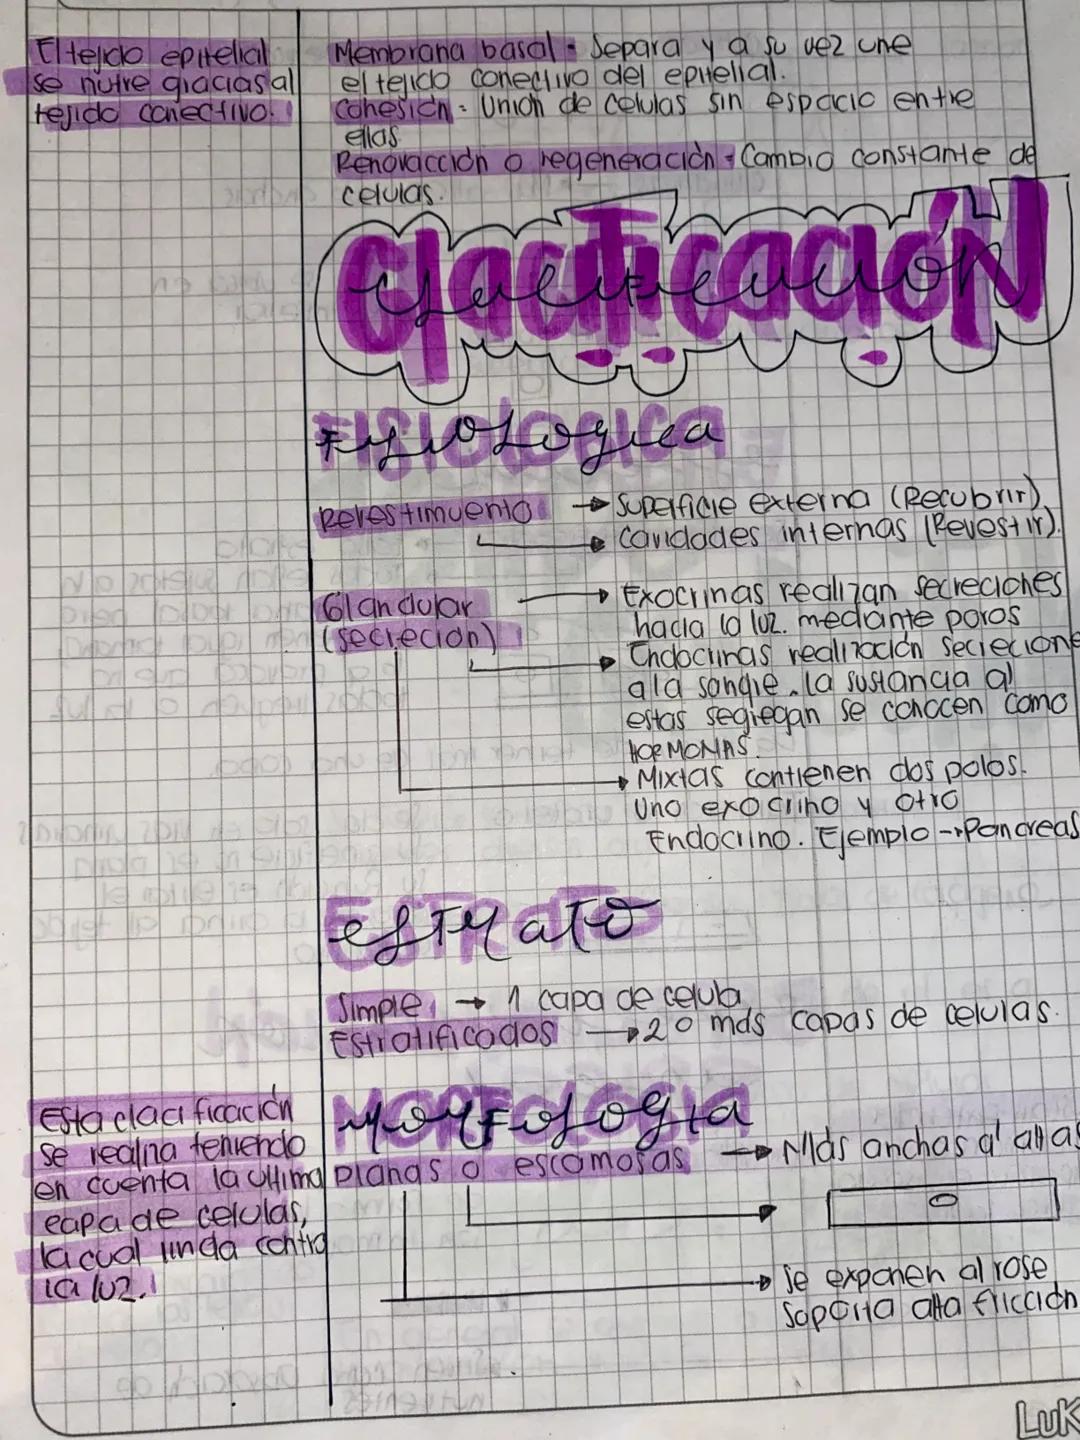 El tejido epitelial
se nutre gracias al
tejido conectivo.
Membrana basal = Separa y a su vez une
el tejido conectivo del epitelial.
Cohesión = Unión de celulas sin espacio entre
ellas.
Renovacción o regeneración = Cambio constante de
celulas.
Clacificación
Fisiologica
Revestimuento → Superficie externa (Recubrir)
→ Cavidades internas (Revestir).
Glandular → Exocrinas realizan secreciones
(secreción) hacia la luz. mediante poros
→ Endocrinas realización secrecione
a la sangre. la sustancia q'
estas segregan se conocen como
HORMONAS.
→ Mixtas contienen dos polos.
Uno exocrino y otro
Endocrino. Ejemplo → Pancreas
Estrato
Simple → 1 capa de celula
Estratificados → 2 o más capas de celulas.
Morfologia
Esta clacificación
se realiza teniendo
en cuenta la ultima
capa de celulas,
la cual linda contra
la luz.
Planas o escamosas → Más anchas q' altas
→ Se exponen al rose
Soporta alta fricción
LuK